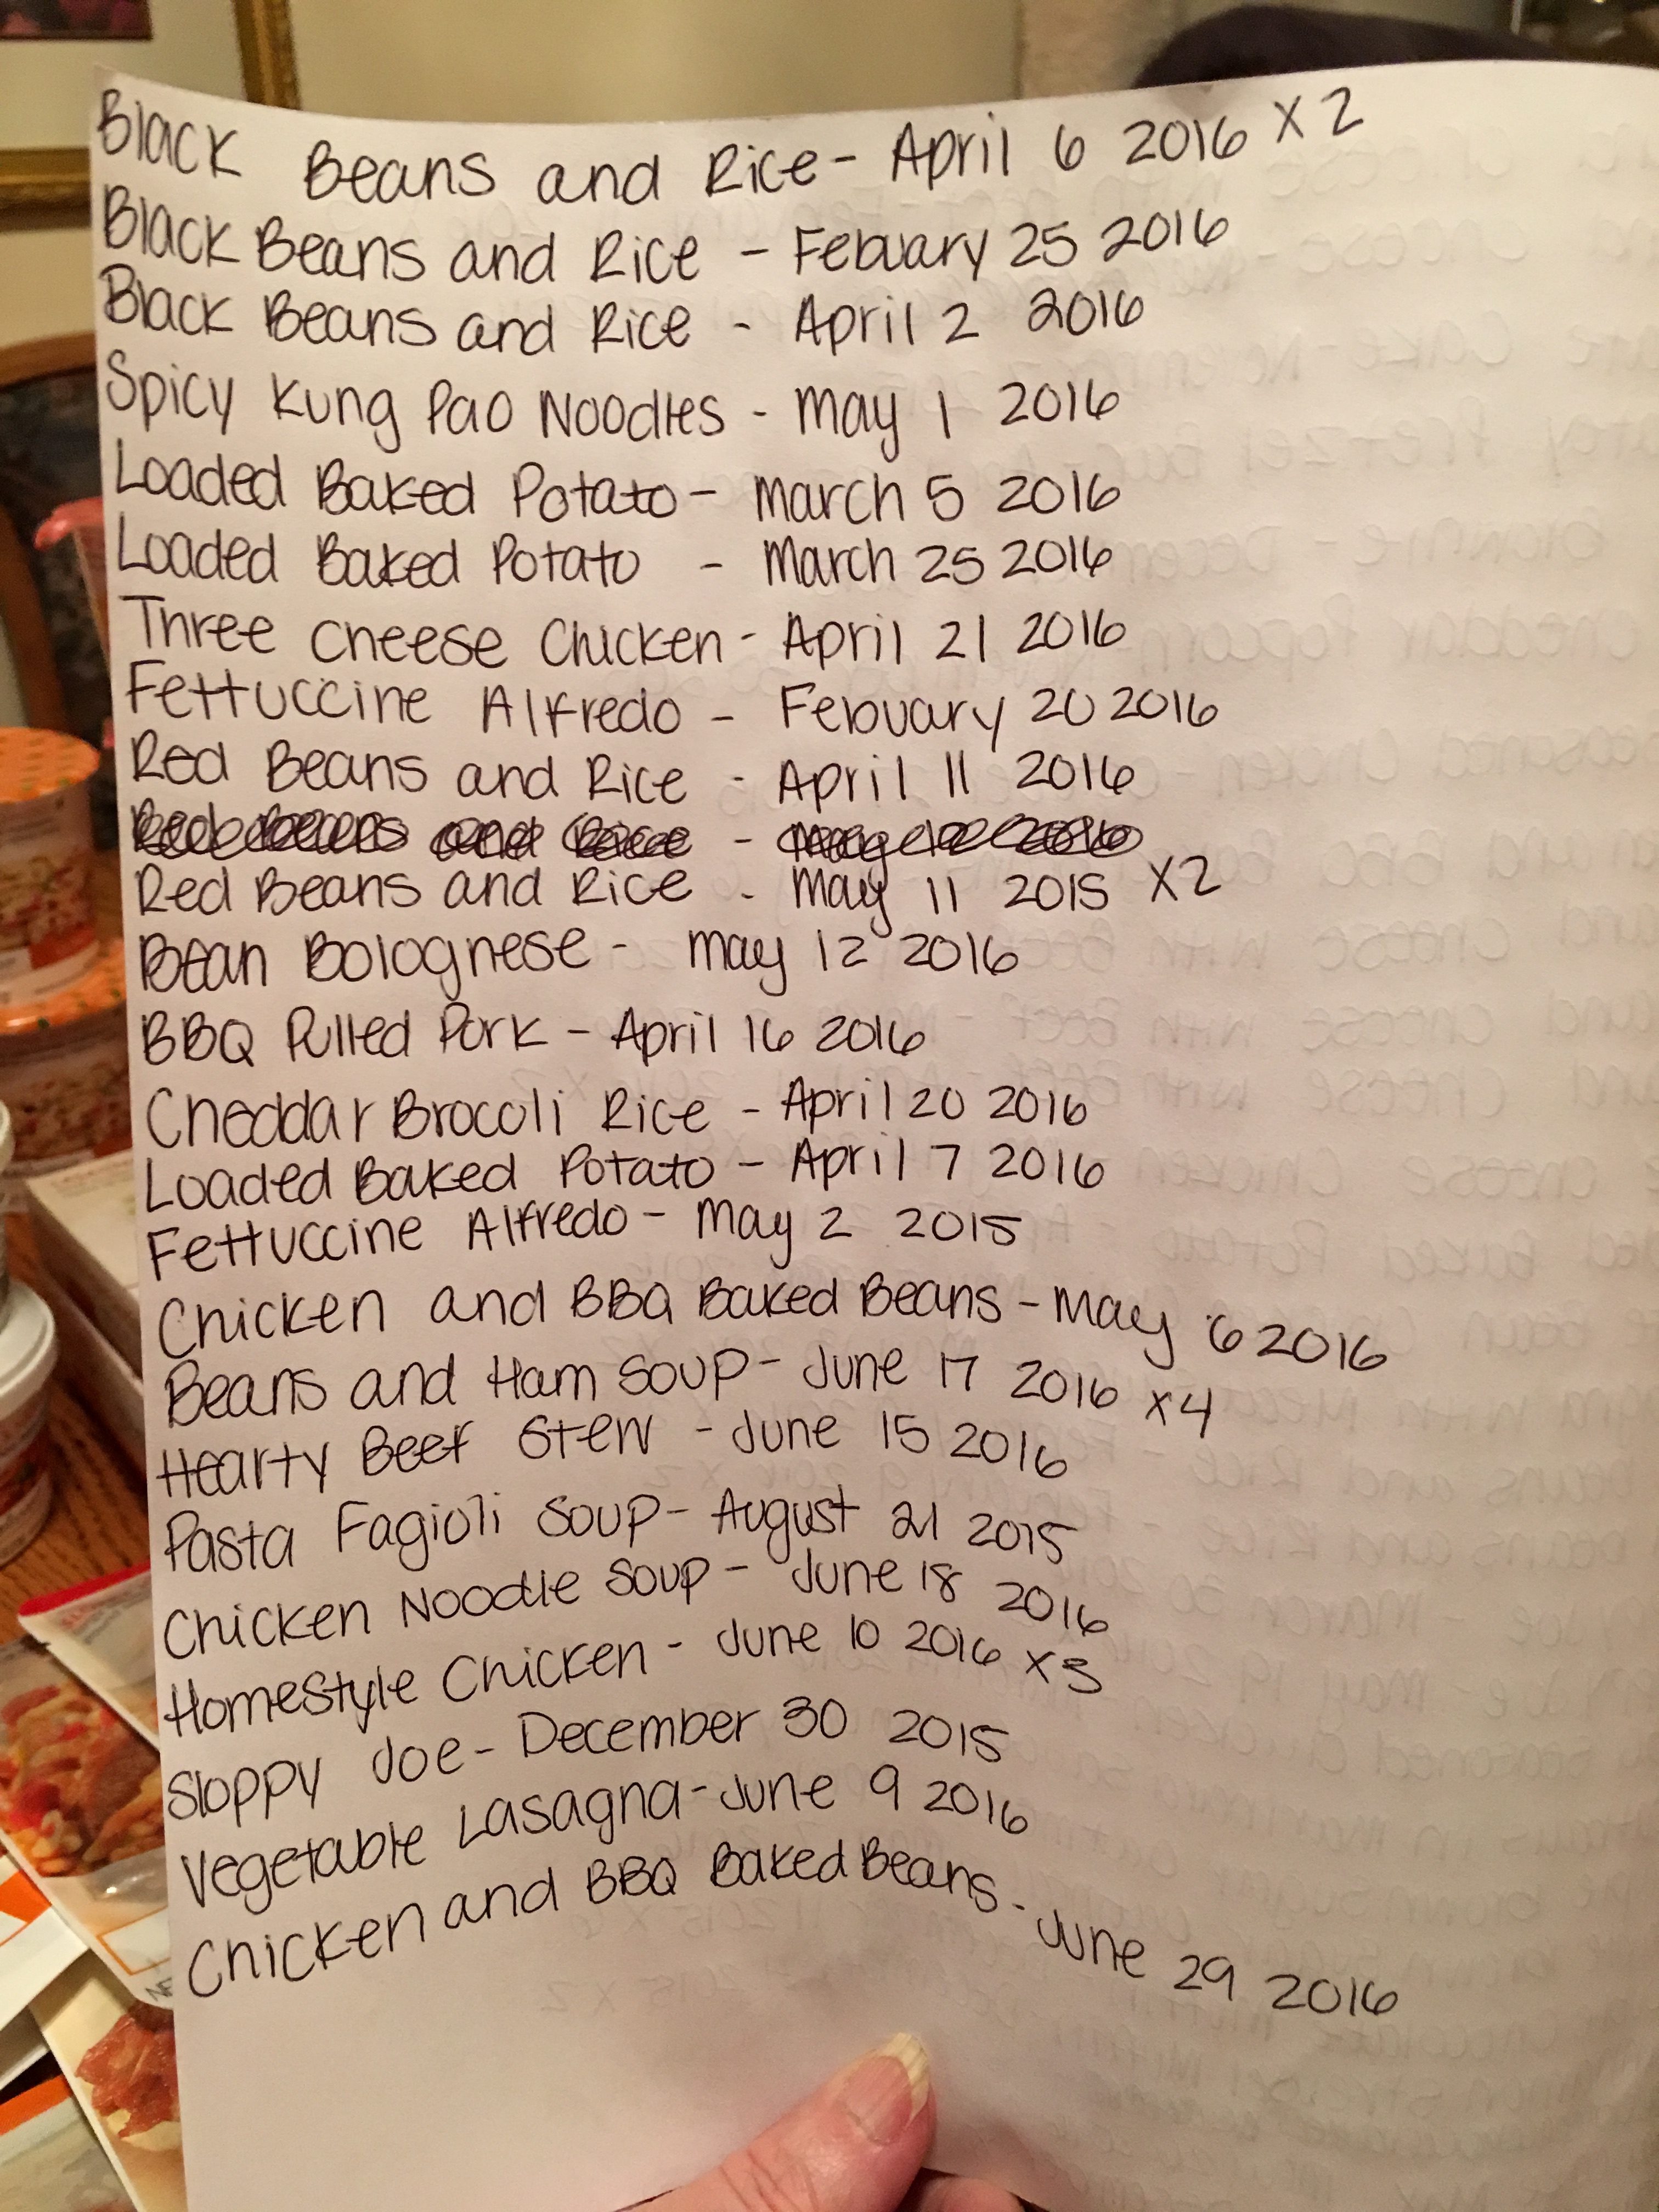 Black Beans and Rice - April 6 2016 x2
Black Beans and Rice - Febuary 25 2016
Black Beans and Rice - April 2 2016
Spicy Kung Pao Noodles - May 1 2016
Loaded Baked Potato - March 5 2016
Loaded Baked Potato - March 25 2016
Three Cheese Chicken - April 21 2016
Fettuccine Alfredo - Febuary 20 2016
Red Beans and Rice - April 11 2016
Red Beans and Rice - May 11 2015 x2
Bean Bolognese - May 12 2016
BBQ Pulled Pork - April 16 2016
Cheddar Brocoli Rice - April 20 2016
Loaded Baked Potato - April 7 2016
Fettuccine Alfredo - May 2 2015
Chicken and BBQ Baked Beans - May 6 2016
Beans and Ham Soup - June 17 2016 x4
Hearty Beef Stew - June 15 2016
Pasta Fagioli Soup - August 21 2015
Chicken Noodle Soup - June 18 2016
Homestyle Chicken - June 10 2016 x
Sloppy Joe - December 30 2015
Vegetable Lasagna - June 9 2016
Chicken and BBQ Baked Beans - June 29 2016